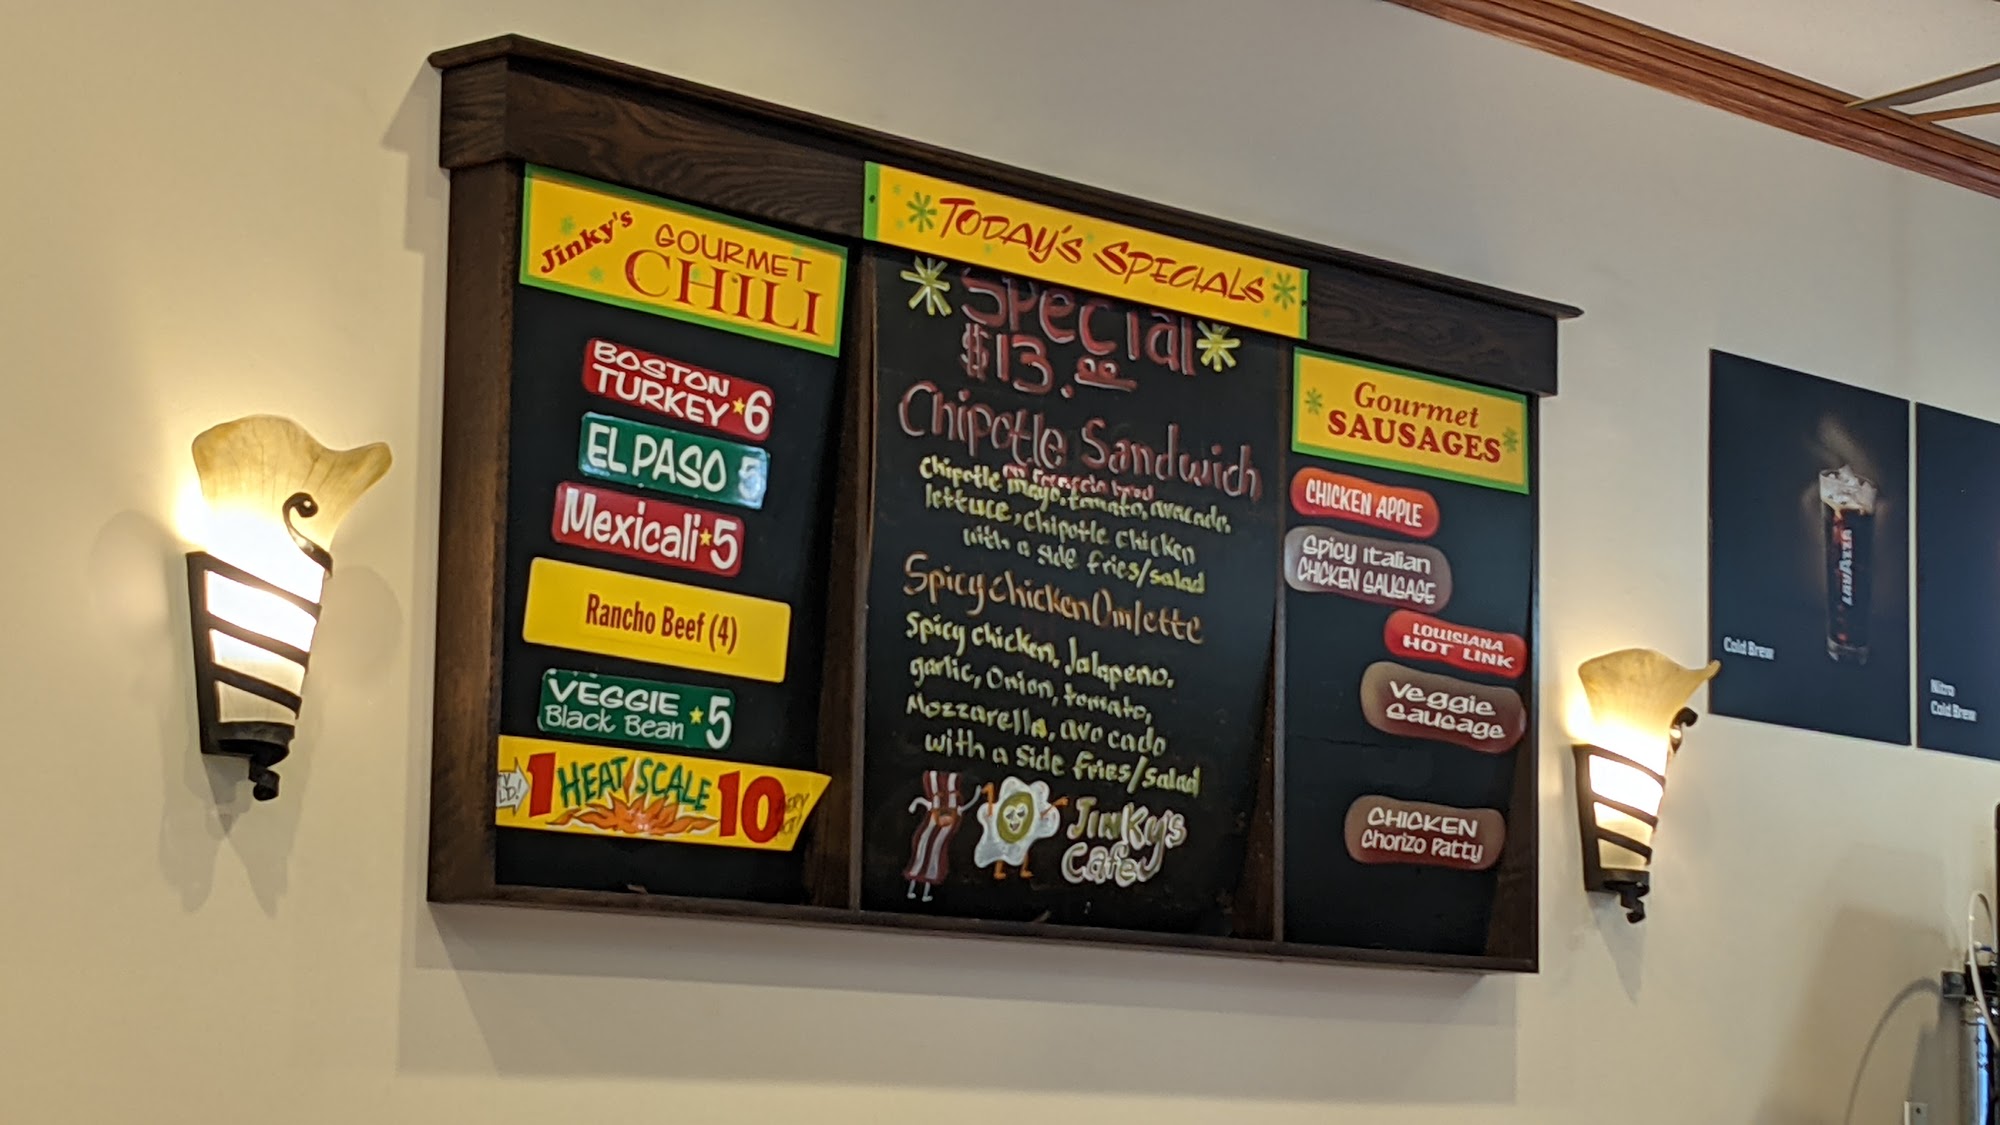 Jinky's
GOURMET
CHILI
BOSTON
TURKEY 6
EL PASO 5
Mexicali 5
Rancho Beef (4)
VEGGIE
Black Bean 5
1 HEAT SCALE 10
TODAY'S SPECIALS
Special
$13.00
Chipotle Sandwich
on Foccacia bread
Chipotle mayo, tomato, avocado,
lettuce, chipotle chicken
with a side fries/salad
Spicy chicken Omlette
Spicy chicken, Jalapeno,
garlic, onion, tomato,
Mozzarella, avocado
with a side fries/salad
Jinky's
Cafe
Gourmet
SAUSAGES
CHICKEN APPLE
Spicy Italian
CHICKEN SAUSAGE
LOUISIANA
HOT LINK
Veggie
Sausage
CHICKEN
Chorizo Patty
LAVAZZA
Cold Brew
Nitro
Cold Brew